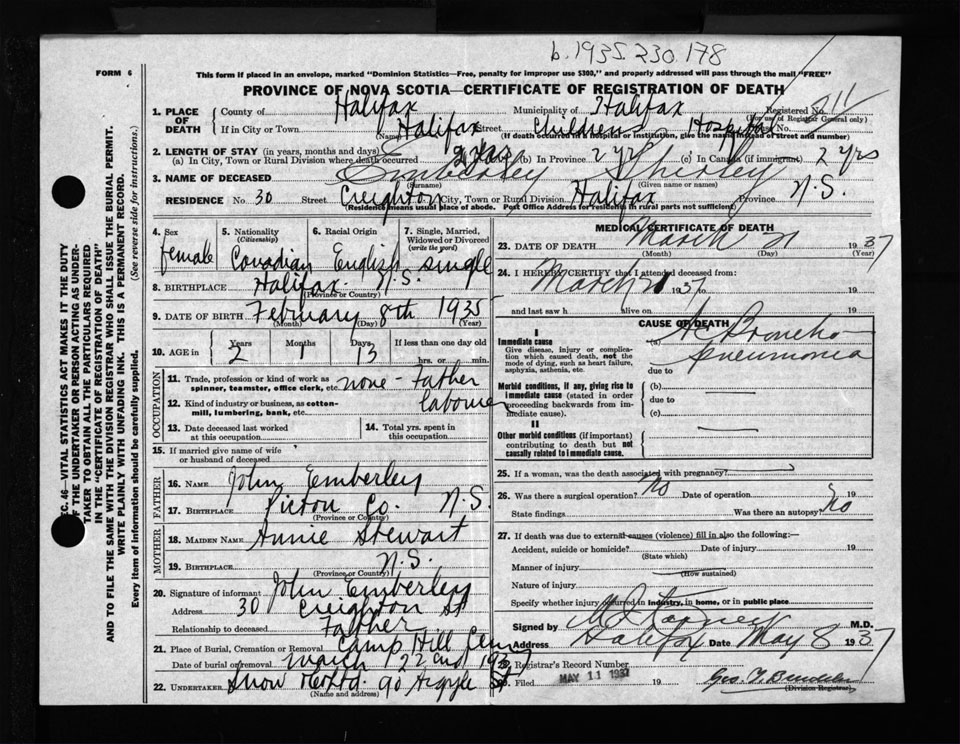 b. 1935 330.178
FORM 6
This form if placed in an envelope, marked "Dominion Statistics—Free, penalty for improper use $300," and properly addressed will pass through the mail "FREE"
PROVINCE OF NOVA SCOTIA—CERTIFICATE OF REGISTRATION OF DEATH
1. PLACE OF DEATH
County of Halifax Municipality of Halifax Registered No. 211
(For use of Registrar General only)
If in City or Town Halifax Street Children's Hospital No.
(Name) (If death occurred in a hospital or institution, give the name instead of street and number)
2. LENGTH OF STAY (in years, months and days)
(a) In City, Town or Rural Division where death occurred 2 yrs (b) In Province 2 yrs (c) In Canada (if immigrant) 2 yrs
3. NAME OF DECEASED Emberley Shirley
(Surname) (Given name or names)
RESIDENCE No. 30 Street Creighton City, Town or Rural Division Halifax Province N.S.
(Residence means usual place of abode. Post Office Address for residents in rural parts not sufficient)
4. Sex female
5. Nationality (Citizenship) Canadian
6. Racial Origin English
7. Single, Married, Widowed or Divorced (write the word) single
8. BIRTHPLACE Halifax N.S.
(Province or Country)
9. DATE OF BIRTH February 8th 1935
(Month) (Day) (Year)
10. AGE in Years 2 Months 1 Days 13 If less than one day old
hrs. or min.
OCCUPATION
11. Trade, profession or kind of work as spinner, teamster, office clerk, etc. none - Father
12. Kind of industry or business, as cotton-mill, lumbering, bank, etc. labourer
13. Date deceased last worked at this occupation
14. Total yrs. spent in this occupation
15. If married give name of wife or husband of deceased
FATHER
16. NAME John Emberley
17. BIRTHPLACE Pictou Co. N.S.
(Province or Country)
MOTHER
18. MAIDEN NAME Annie Stewart
19. BIRTHPLACE N.S.
(Province or Country)
20. Signature of informant John Emberley
Address 30 Creighton St
Relationship to deceased Father
21. Place of Burial, Cremation or Removal Camp Hill Cem
Date of burial or removal March 22nd 1937
22. UNDERTAKER Snow & Co Ltd. 90 Argyle St
(Name and address)
MEDICAL CERTIFICATE OF DEATH
23. DATE OF DEATH March 21 1937
(Month) (Day) (Year)
24. I HEREBY CERTIFY that I attended deceased from:
March 21 1937 to 19
and last saw h alive on 19
CAUSE OF DEATH
I
Immediate cause
Give disease, injury or complication which caused death, not the mode of dying, such as heart failure, asphyxia, asthenia, etc.
(a) Ac Broncho-pneumonia
due to
Morbid conditions, if any, giving rise to immediate cause (stated in order proceeding backwards from immediate cause).
(b)
due to
(c)
II
Other morbid conditions (if important) contributing to death but not causally related to immediate cause.
25. If a woman, was the death associated with pregnancy?
26. Was there a surgical operation? No Date of operation 19
State findings Was there an autopsy? No
27. If death was due to external causes (violence) fill in also the following:—
Accident, suicide or homicide? Date of injury 19
(State which)
Manner of injury
(How sustained)
Nature of injury
Specify whether injury occurred in industry, in home, or in public place
Signed by M.D.
Address Halifax Date May 8 1937
28. Registrar's Record Number
Filed MAY 11 1937 19
(Division Registrar)
SEC. 46—VITAL STATISTICS ACT MAKES IT THE DUTY
OF THE UNDERTAKER OR PERSON ACTING AS UNDER-
TAKER TO OBTAIN ALL THE PARTICULARS REQUIRED
IN THE "CERTIFICATE OF REGISTRATION OF DEATH"
AND TO FILE THE SAME WITH THE DIVISION REGISTRAR WHO SHALL ISSUE THE BURIAL PERMIT.
WRITE PLAINLY WITH UNFADING INK. THIS IS A PERMANENT RECORD.
Every item of information should be carefully supplied. (See reverse side for instructions.)